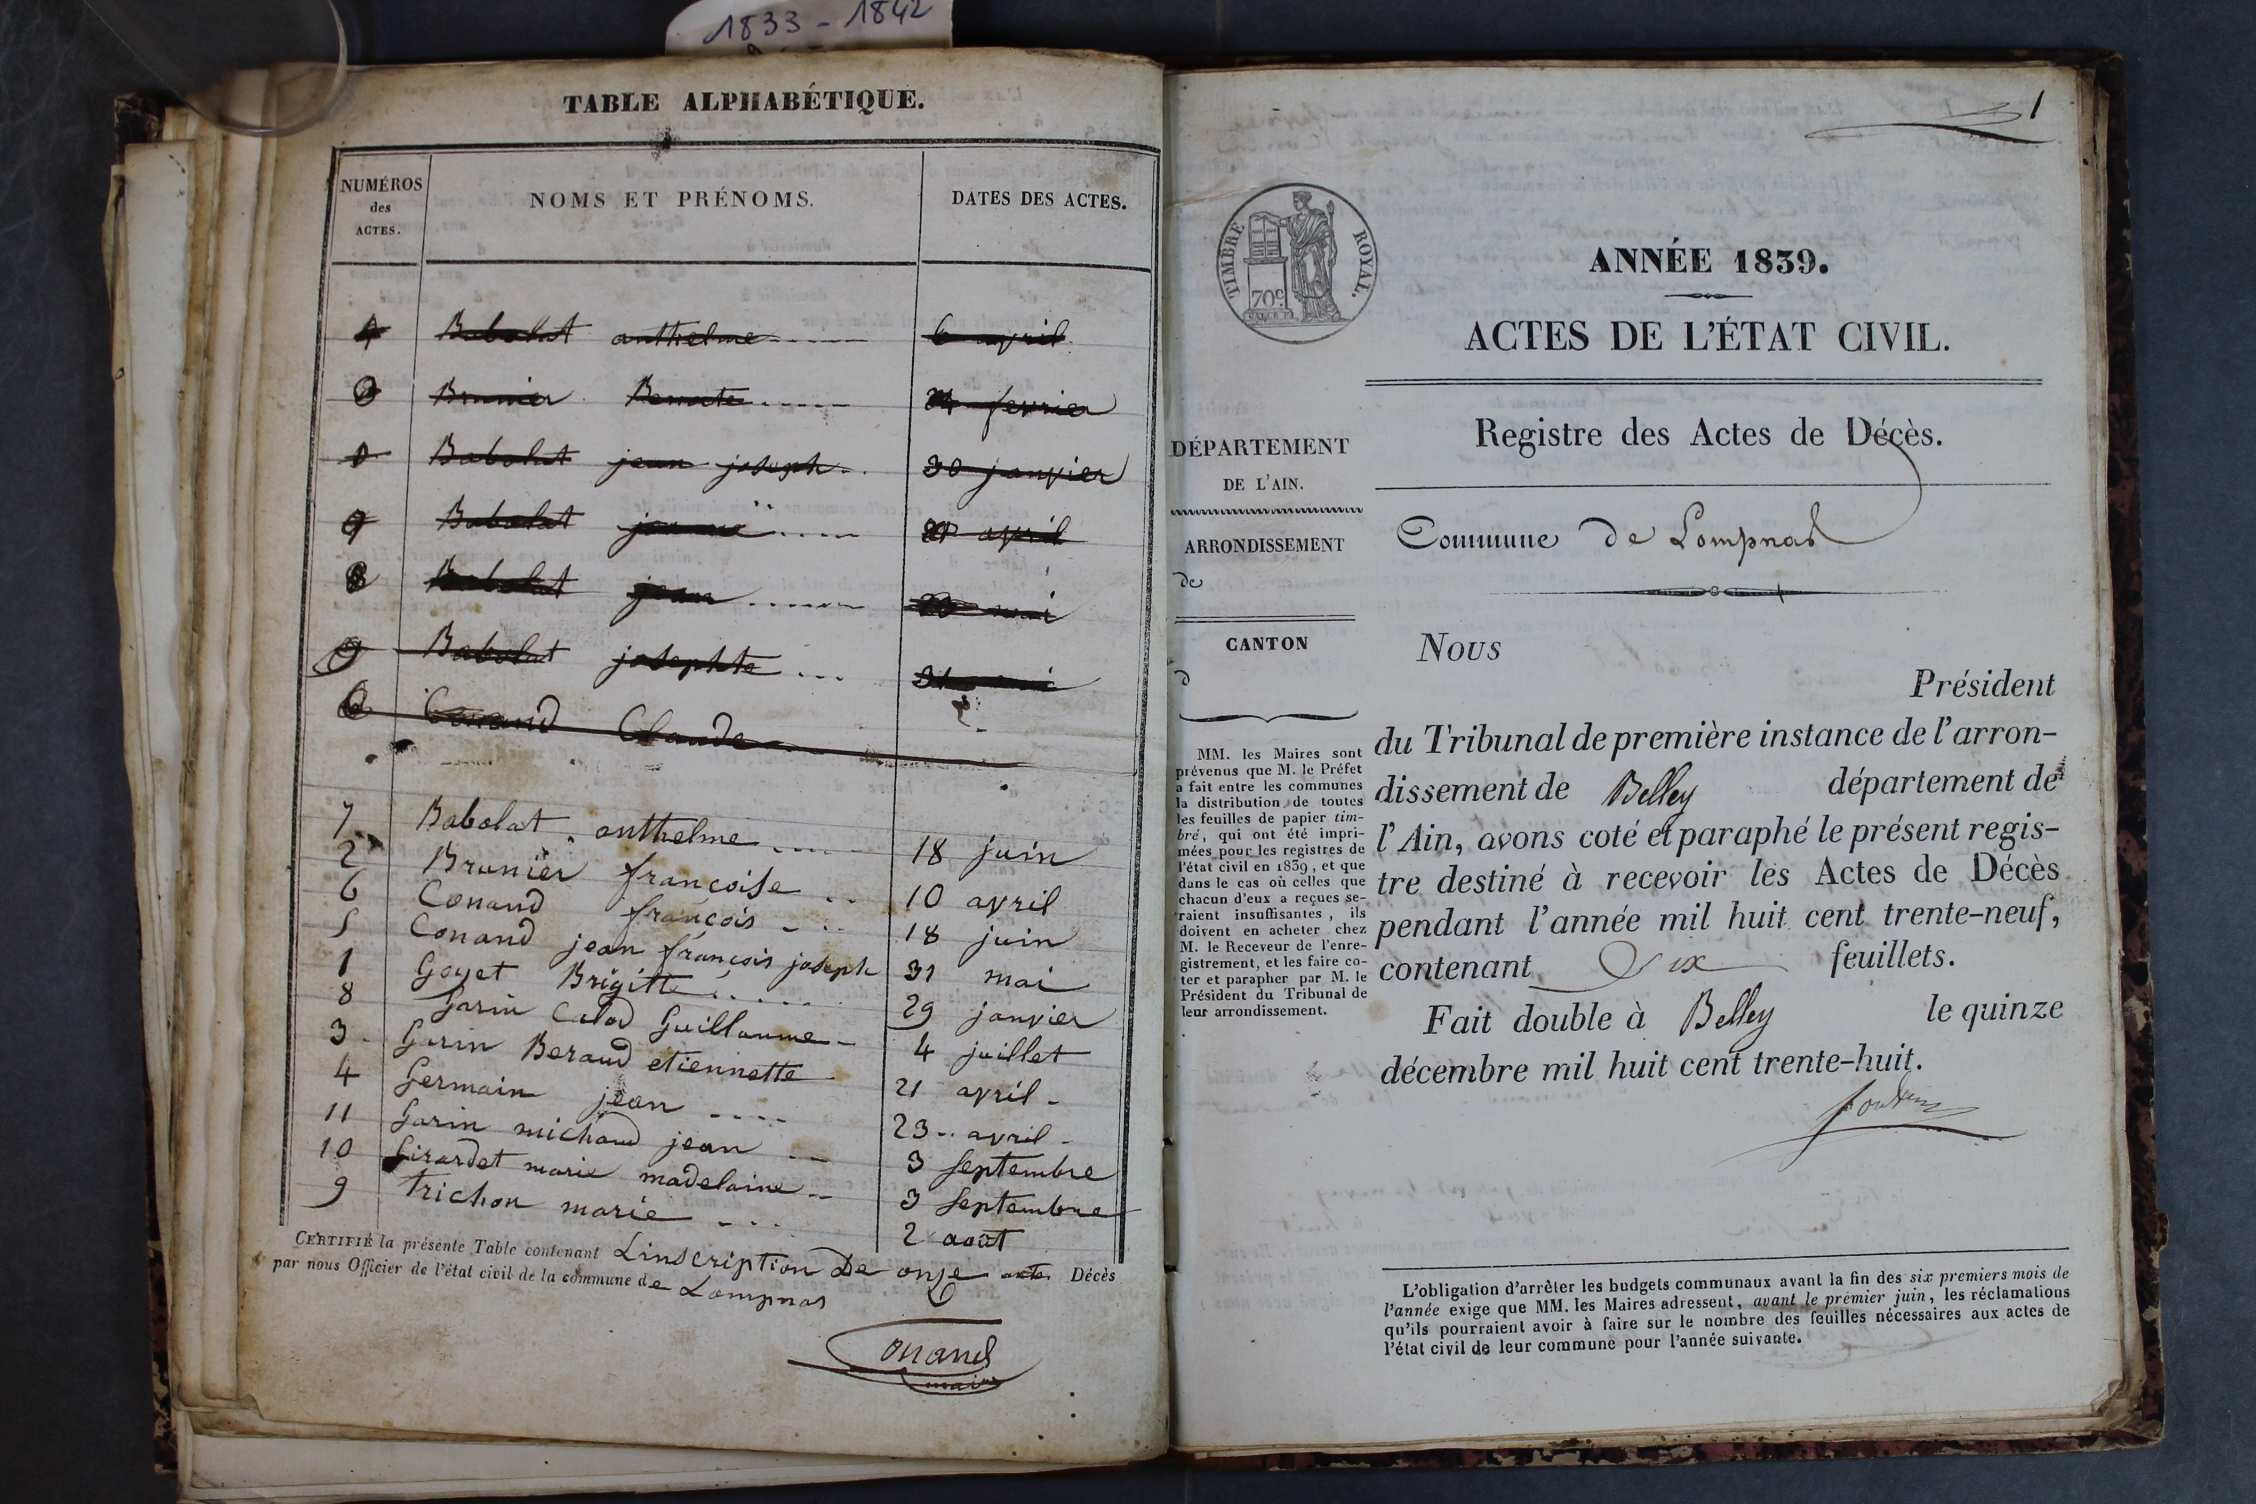 1833 - 1842
TABLE ALPHABÉTIQUE.
NUMÉROS des ACTES. NOMS ET PRÉNOMS. DATES DES ACTES.
4 Babolat anthelme 6 avril
Brunier fevrier
Babolat jean joseph 30 janvier
Babolat avril
8 Babolat jean mai
9 Babolat josephte 31 mai
Conand Claude
7 Babolat anthelme 18 juin
2 Brunier françoise 10 avril
6 Conand françois 18 juin
5 Conand jean françois joseph 31 mai
1 Goyet Brigitte 29 janvier
8 Garin Calod Guillaume 4 juillet
3 Garin Beraud etiennette 21 avril
4 Germain jean 23 avril
11 Garin michaud jean 3 septembre
10 Girardet marie madelaine 3 septembre
9 Trichon marie 2 août
CERTIFIÉ la présente Table contenant Linscription De onze actes Décès
par nous Officier de l'état civil de la commune de Lompnas
Conand
maire
1
TIMBRE ROYAL.
70c
ANNÉE 1839.
ACTES DE L'ÉTAT CIVIL.
Registre des Actes de Décès.
Commune de Lompnas
DÉPARTEMENT
DE L'AIN.
ARRONDISSEMENT
de
CANTON
d
MM. les Maires sont
prévenus que M. le Préfet
a fait entre les communes
la distribution de toutes
les feuilles de papier tim-
bré, qui ont été impri-
mées pour les registres de
l'état civil en 1839, et que
dans le cas où celles que
chacun d'eux a reçues se-
raient insuffisantes, ils
doivent en acheter chez
M. le Receveur de l'enre-
gistrement, et les faire co-
ter et parapher par M. le
Président du Tribunal de
leur arrondissement.
Nous
Président
du Tribunal de première instance de l'arron-
dissement de Belley département de
l'Ain, avons coté et paraphé le présent regis-
tre destiné à recevoir les Actes de Décès
pendant l'année mil huit cent trente-neuf,
contenant Six feuillets.
Fait double à Belley le quinze
décembre mil huit cent trente-huit.
L'obligation d'arrêter les budgets communaux avant la fin des six premiers mois de
l'année exige que MM. les Maires adressent, avant le premier juin, les réclamations
qu'ils pourraient avoir à faire sur le nombre des feuilles nécessaires aux actes de
l'état civil de leur commune pour l'année suivante.